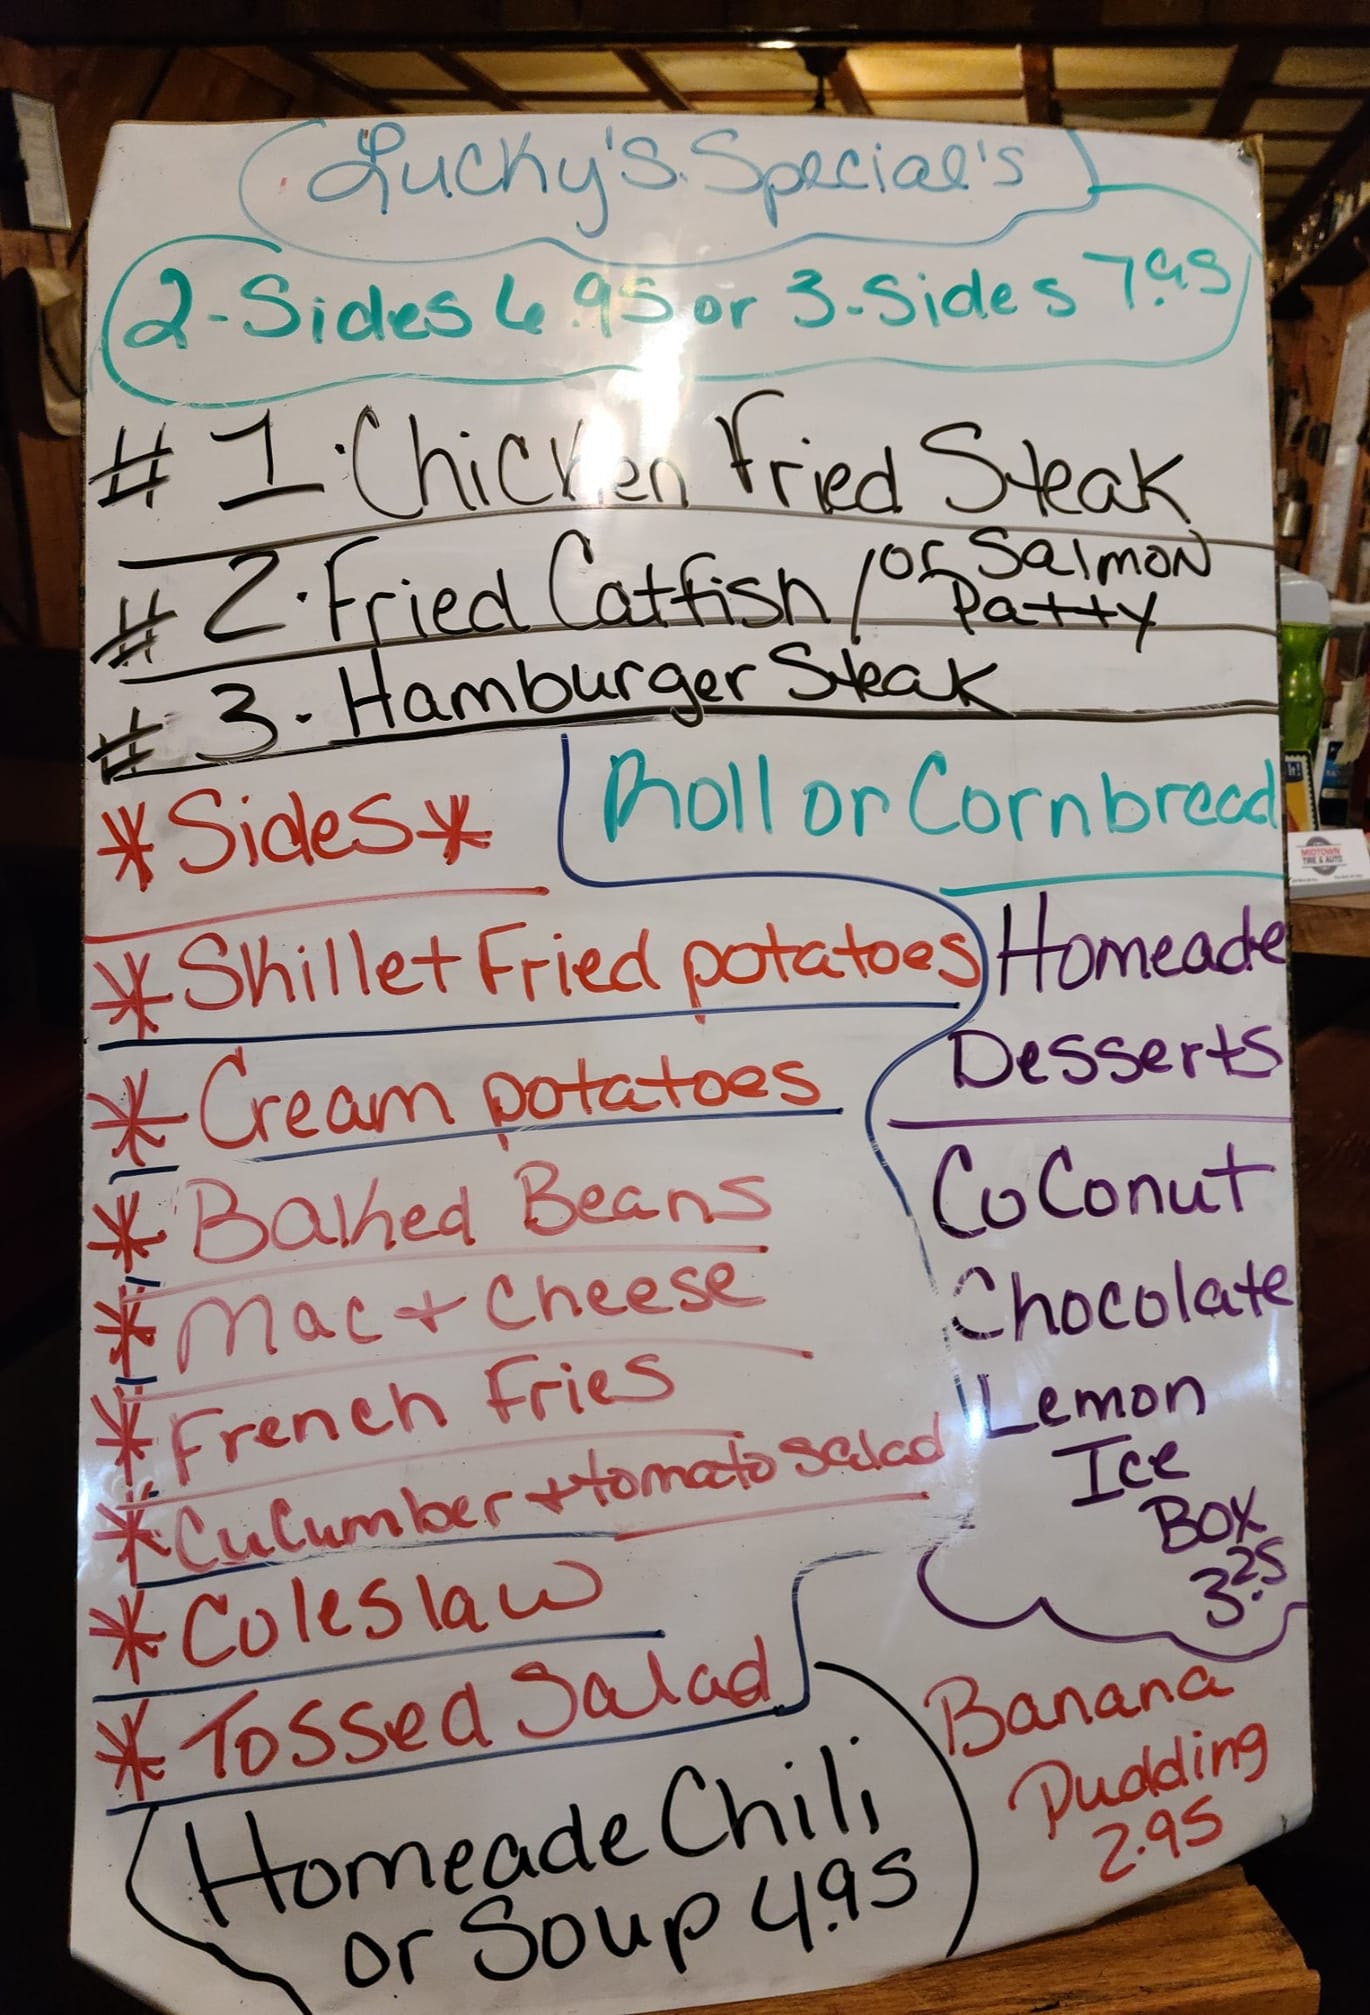 Lucky's Special's
2-Sides 6.95 or 3-Sides 7.95
#1. Chicken Fried Steak
#2. Fried Catfish / or Salmon
Patty
#3. Hamburger Steak
*Sides*
Roll or Cornbread
* Skillet Fried potatoes
* Cream potatoes
* Baked Beans
* Mac + Cheese
* French Fries
* Cucumber + tomato salad
* Coleslaw
* Tossed Salad
Homeade
Desserts
CoConut
Chocolate
Lemon
Ice
Box
3.25
Banana
Pudding
2.95
Homeade Chili
or Soup 4.95
MIDTOWN
TIRE & AUTO